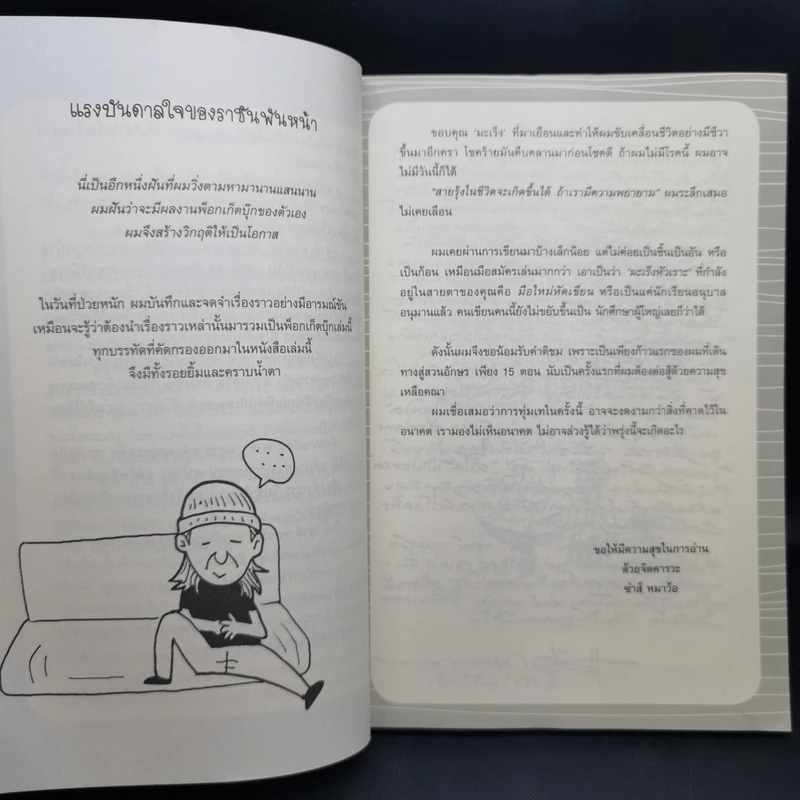 แรงบันดาลใจของราชันพันหน้า
นี่เป็นอีกหนึ่งฝันที่ผมวิ่งตามหามานานแสนนาน
ผมฝันว่าจะมีผลงานพ็อกเก็ตบุ๊กของตัวเอง
ผมจึงสร้างวิกฤติให้เป็นโอกาส
ในวันที่ป่วยหนัก ผมบันทึกและจดจำเรื่องราวอย่างมีอารมณ์ขัน
เหมือนจะรู้ว่าต้องนำเรื่องราวเหล่านั้นมารวมเป็นพ็อกเก็ตบุ๊กเล่มนี้
ทุกบรรทัดที่คัดกรองออกมาในหนังสือเล่มนี้
จึงมีทั้งรอยยิ้มและคราบน้ำตา
ขอบคุณ 'มะเร็ง' ที่มาเยือนและทำให้ผมขับเคลื่อนชีวิตอย่างมีชีวา
ขึ้นมาอีกครา โชคร้ายมันคืบคลานมาก่อนโชคดี ถ้าผมไม่มีโรคนี้ ผมอาจ
ไม่มีวันนี้ก็ได้
"สายรุ้งในชีวิตจะเกิดขึ้นได้ ถ้าเรามีความพยายาม" ผมระลึกเสมอ
ไม่เคยเลือน
ผมเคยผ่านการเขียนมาบ้างเล็กน้อย แต่ไม่ค่อยเป็นชิ้นเป็นอัน หรือ
เป็นก้อน เหมือนมือสมัครเล่นมากกว่า เอาเป็นว่า 'มะเร็งหัวเราะ' ที่กำลัง
อยู่ในสายตาของคุณคือ มือใหม่หัดเขียน หรือเป็นแค่นักเรียนอนุบาล
อนุมานแล้ว คนเขียนคนนี้ยังไม่ขยับขึ้นเป็น นักศึกษาผู้ใหญ่เลยก็ว่าได้
ดังนั้นผมจึงขอน้อมรับคำติชม เพราะเป็นเพียงก้าวแรกของผมที่เดิน
ทางสู่สวนอักษร เพียง 15 ตอน นับเป็นครั้งแรกที่ผมต้องต่อสู้ด้วยความสุข
เหลือคณา
ผมเชื่อเสมอว่าการทุ่มเทในครั้งนี้ อาจจะงดงามกว่าสิ่งที่คาดไว้ใน
อนาคต เรามองไม่เห็นอนาคต ไม่อาจล่วงรู้ได้ว่าพรุ่งนี้จะเกิดอะไร
ขอให้มีความสุขในการอ่าน
ด้วยจิตคารวะ
ซ่าส์ หมาว้อ